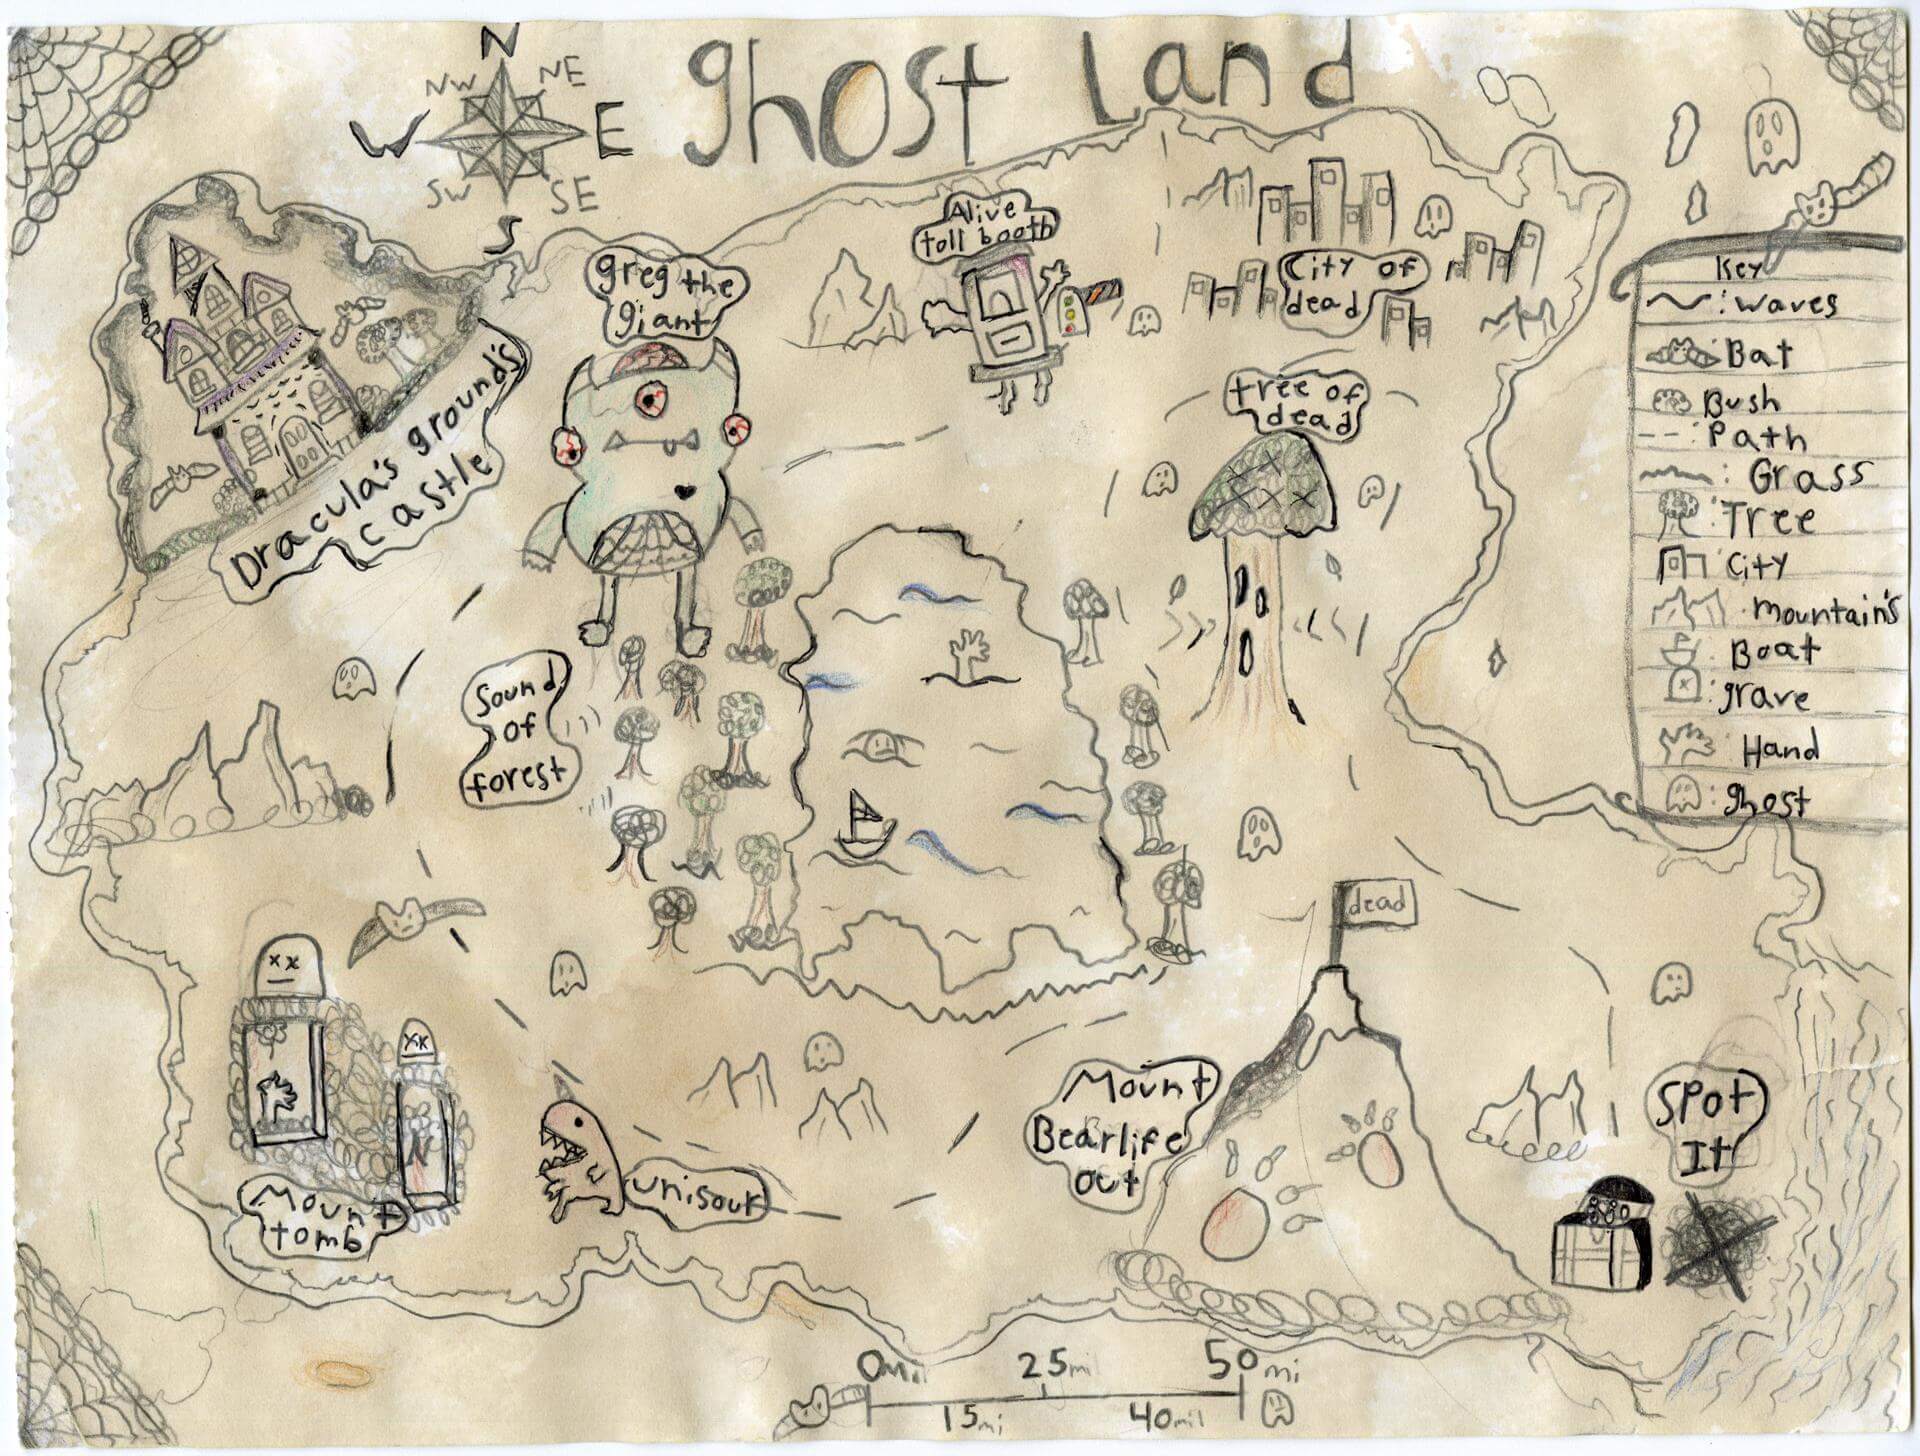 Ghost Land
N
NW
NE
W
E
SW
SE
S
Alive
toll booth
greg the
giant
City of
dead
Key
: waves
: Bat
Bush
: Path
: Grass
: Tree
: City
: mountain's
: Boat
: grave
: Hand
: ghost
tree of
dead
Dracula's ground's
castle
Sound
of
forest
dead
xx
xx
Mount
Bearlife
out
Spot
It
Mount
tomb
unisour
25mi
50mi
15mi
40mil